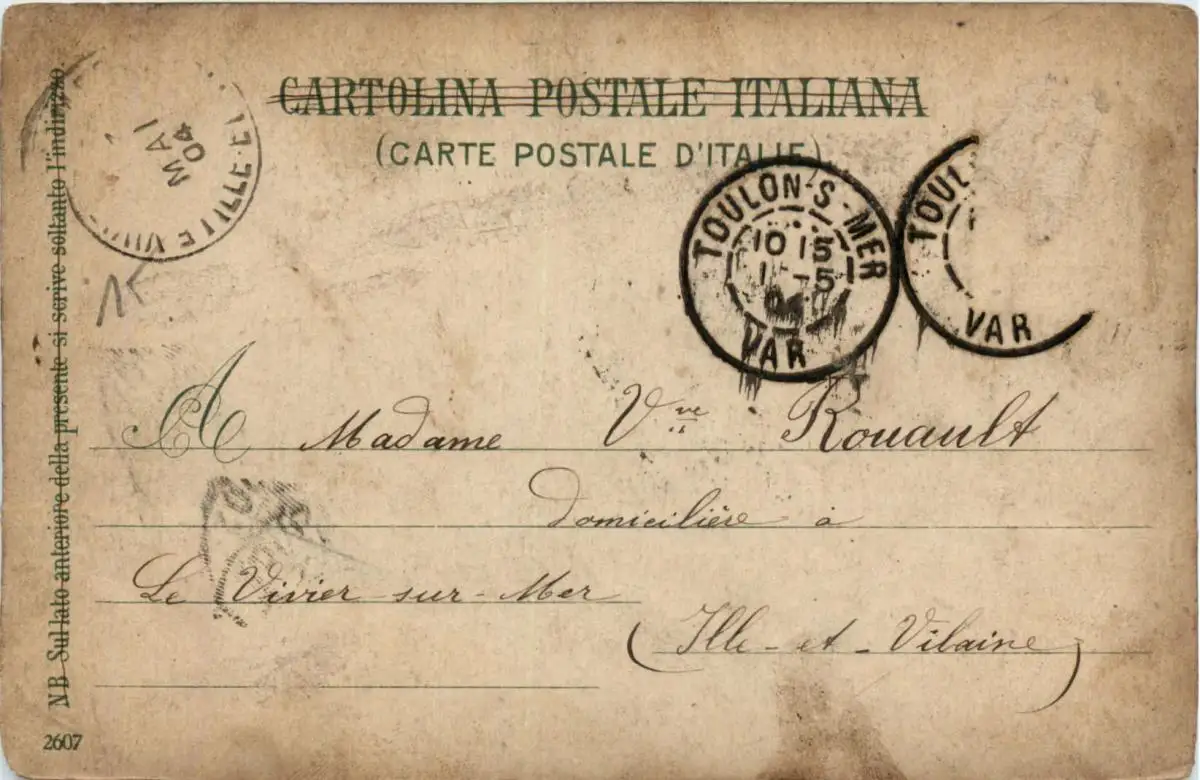 CARTOLINA POSTALE ITALIANA
(CARTE POSTALE D'ITALIE)
MAI
04
TOULON-S-MER
10 15
1 -5
04
VAR
TOUL
VAR
A Madame Vve Rouault
domicilière à
Le Vivier sur-Mer
(Ille-et-Vilaine)
NB. Sul lato anteriore della presente si scrive soltanto l'indirizzo.
2607